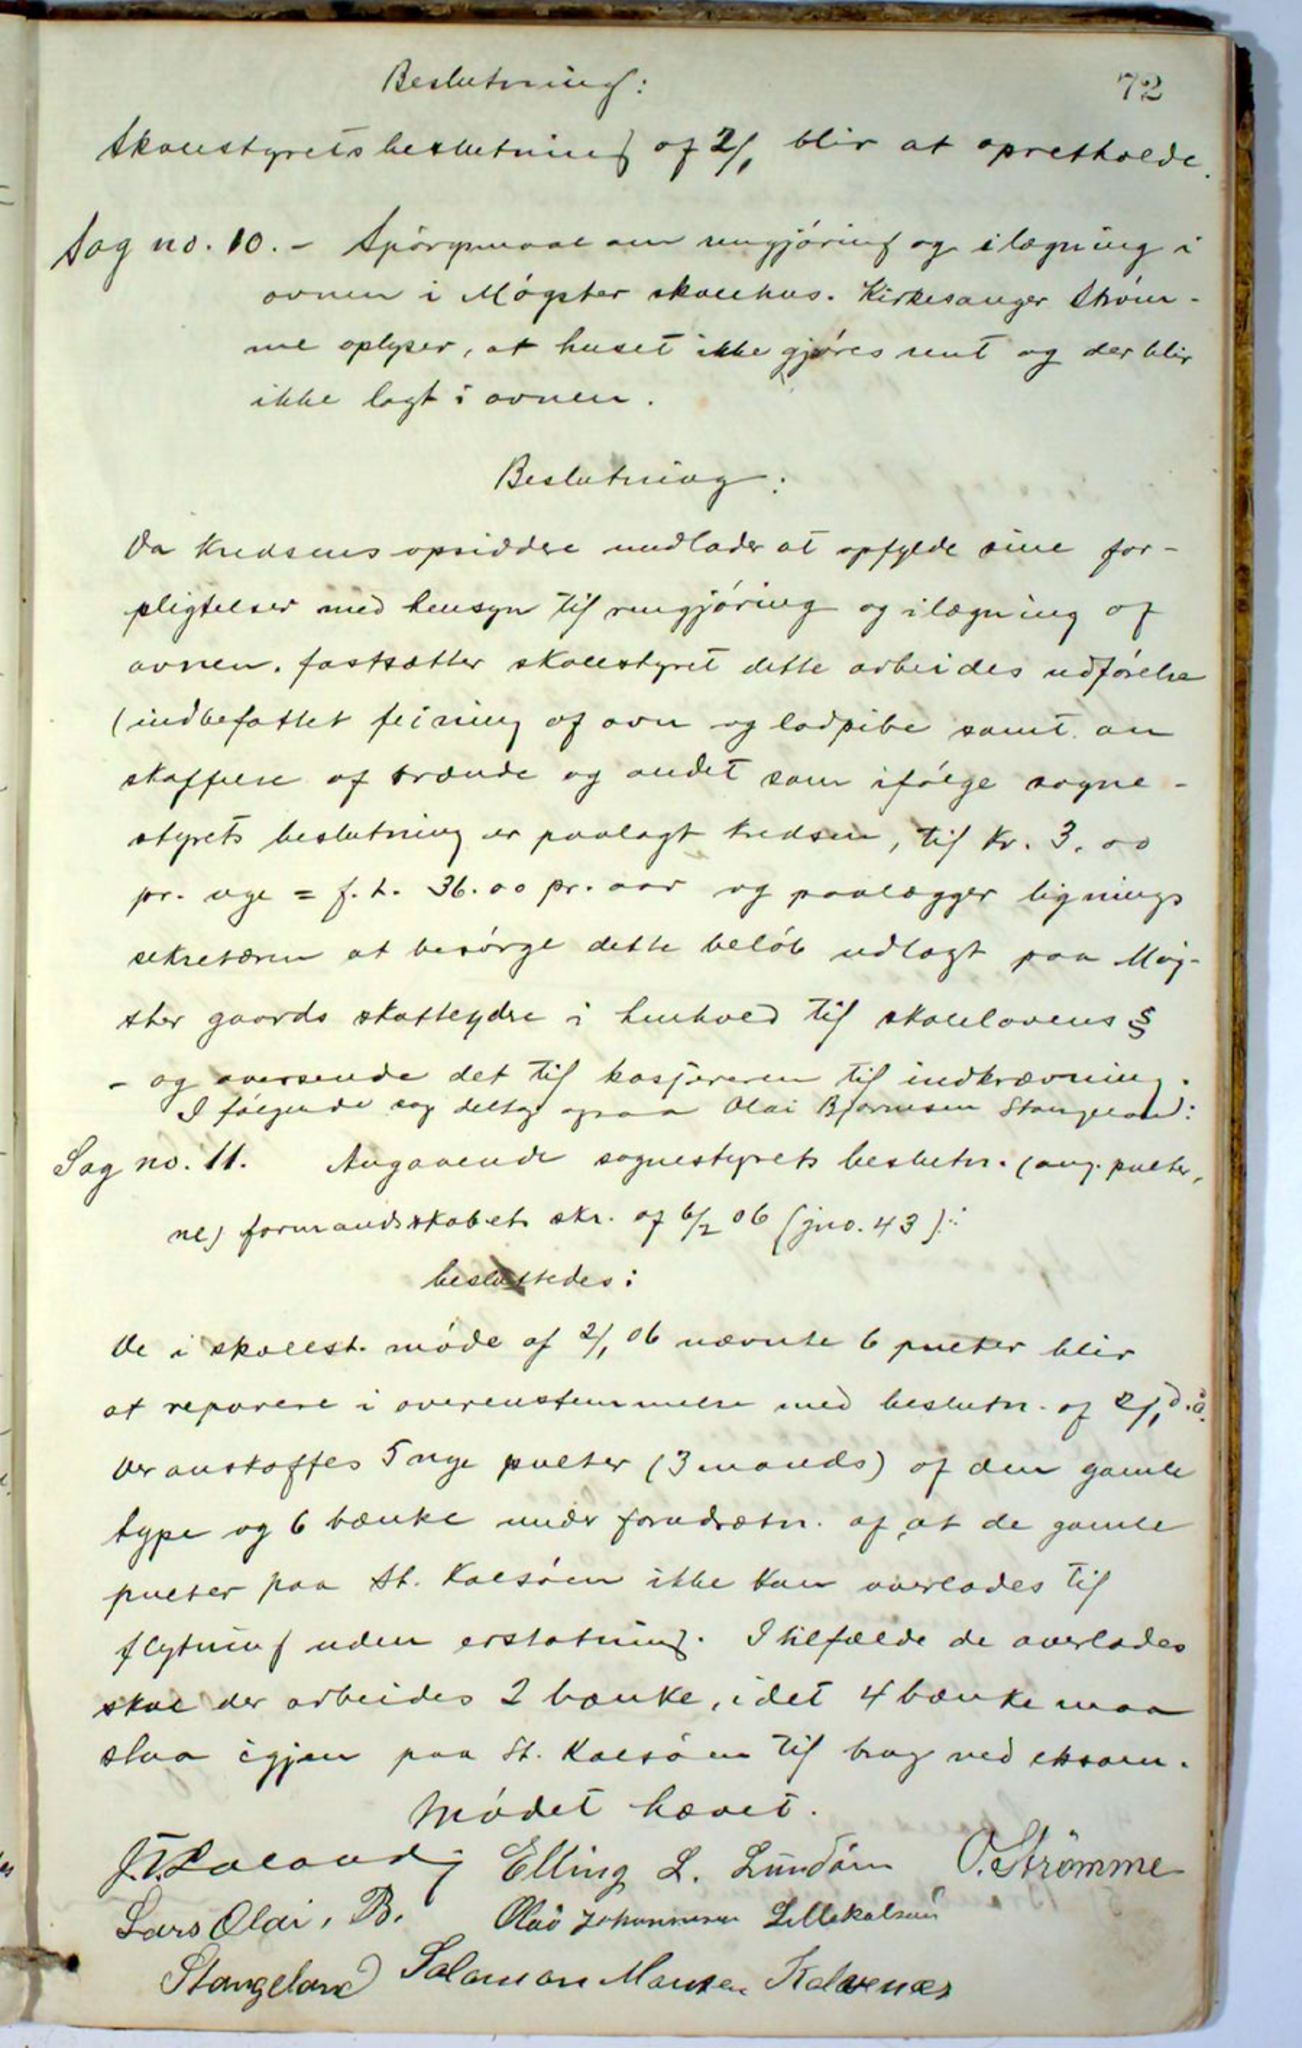 72
Beslutning:
Skolestyrets beslutning af 2/1 blir at opretholde.
Sag no. 10. - Spörgsmaal om rengjöring og ilægning i
ovnen i Mögster skolehus. Kirkesanger Ström-
me oplyser, at huset ikke gjöres rent og der blir
ikke lagt i ovnen.
Beslutning:
Da kredsens opsiddere undlader at opfylde sine for-
pligtelser med hensyn til rengjöring og ilægning af
ovnen, fastsætter skolestyret dette arbeides udförelse
(indbefattet feining af ovn og ladpibe samt an
skaffelse af brænde og andet som ifölge sogne-
styrets beslutning er paalagt kredsen, til kr. 3.00
pr. uge = f. t. 36.00 pr. aar og paalægger lignings
sekretæren at besörge dette belöb udlagt paa Mög-
ster gaards skatteydere i henhold til skolelovens §
- og oversende det til kasjereren til indkrævning.
I fölgende sag deltog ogsaa Olai Bjørnsen Stangeland:
Sag no. 11. Angaaende sognestyrets beslutn. (ang. pulter,
ne) formandsskabets skr. af 6/2 06 (jno. 43):
besluttedes:
De i skolest. möde af 2/1 06 nævnte 6 pulter blir
at reparere i overenstemmelse med beslutn. af 2/1 d. å.
Der anskaffes 5 nye pulter (3 mands) af den gamle
type og 6 bænke under forudsætn. af, at de gamle
pulter paa St. Kalsöen ikke kan overlades til
flytning uden erstatning. I tilfælde de overlades
skal der arbeides 2 bænke, idet 4 bænke maa
staa igjen paa St. Kalsöen til brug ved eksam.
Mödet hævet.
Elling L. Lundöm O. Strömme
Lars Olai, B. Olai Johannesen Lillekalsöi
Stangeland Salamon Mansen Kalvenæs